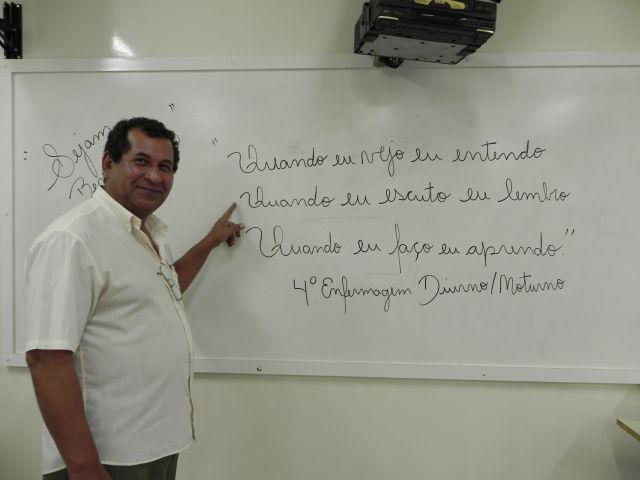 " Sejam "
" Quando eu vejo eu entendo
Quando eu escuto eu lembro
Quando eu faço eu aprendo."
4º Enfermagem Diurno/Noturno